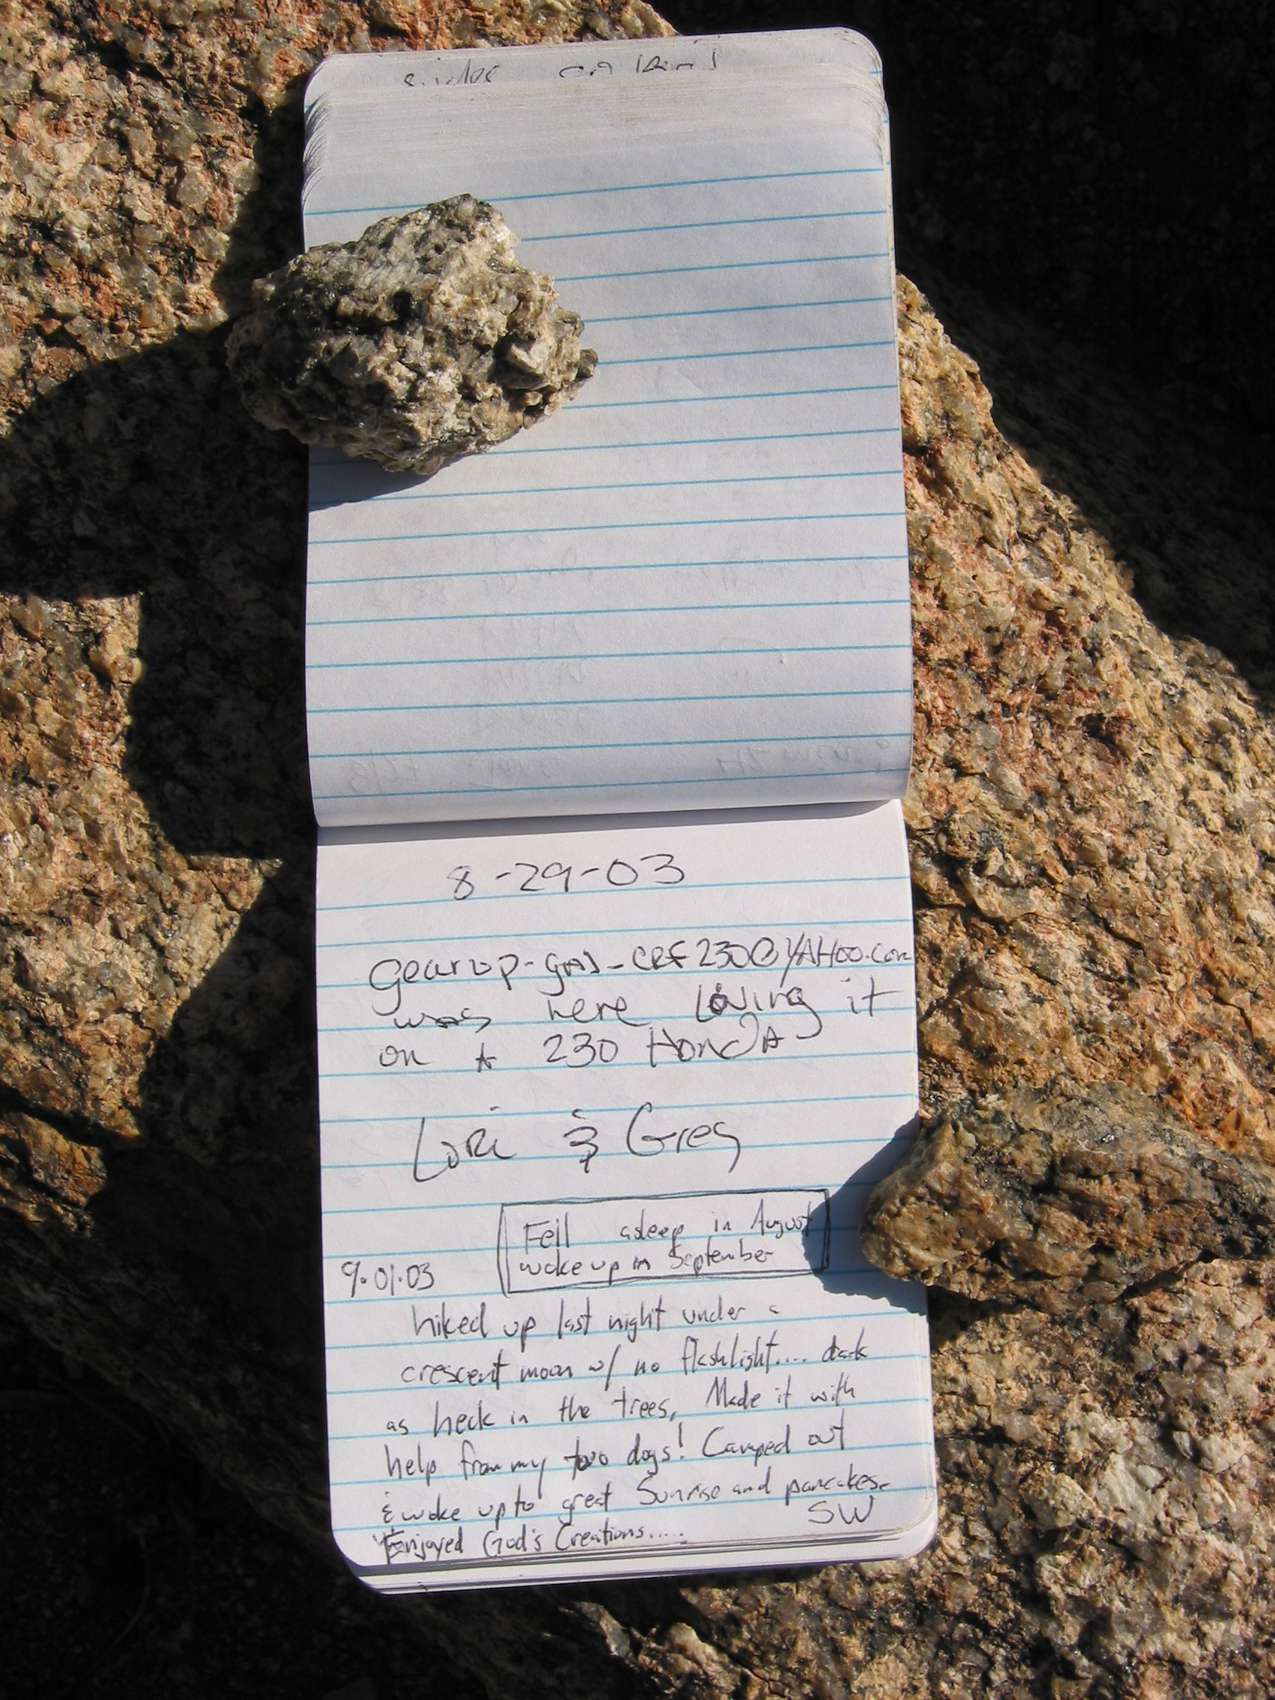 8-29-03
gearup-gas_CRF230@YAHOO.com
was here loving it
on A 230 HONDA
Lori & Greg
Fell asleep in August
woke up in September
9.01.03
hiked up last night under a
crescent moon w/ no flashlight.... dark
as heck in the trees, Made it with
help from my two dogs! Camped out
& woke up to great Sunrise and pancakes.
SW
Enjoyed God's Creations.....